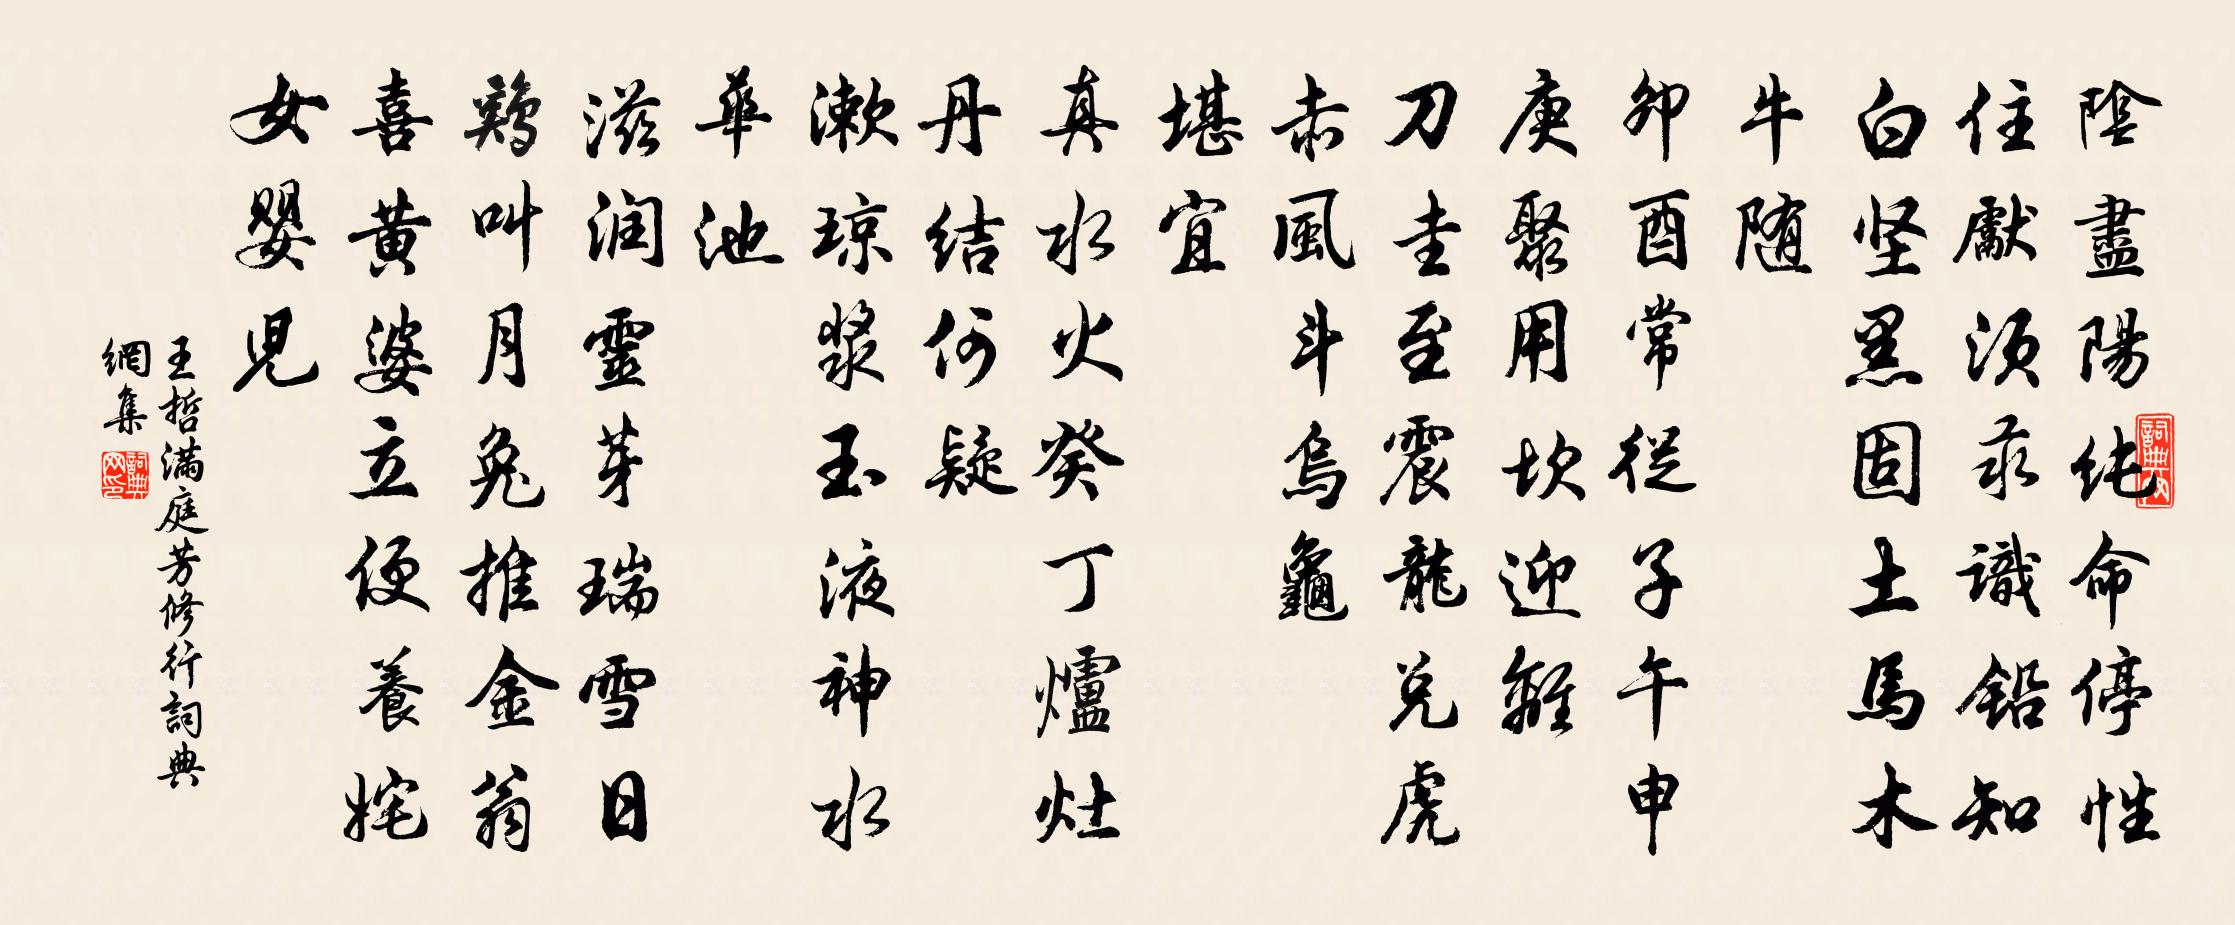 陰盡陽純命停性
住獻須汞識鉛知
白坚黑固土馬木
牛随
卯酉常從子午申
庚聚用坎迎離
刀圭至震龍兑虎
赤風斗烏龜
堪宜
真水火癸丁爐灶
丹结何疑
漱琼漿玉液神水
華池
滋润靈芽瑞雪日
鷄叫月兔推金翁
喜黄婆立便養姹
女嬰児
王哲满庭芳修行詞典
網集